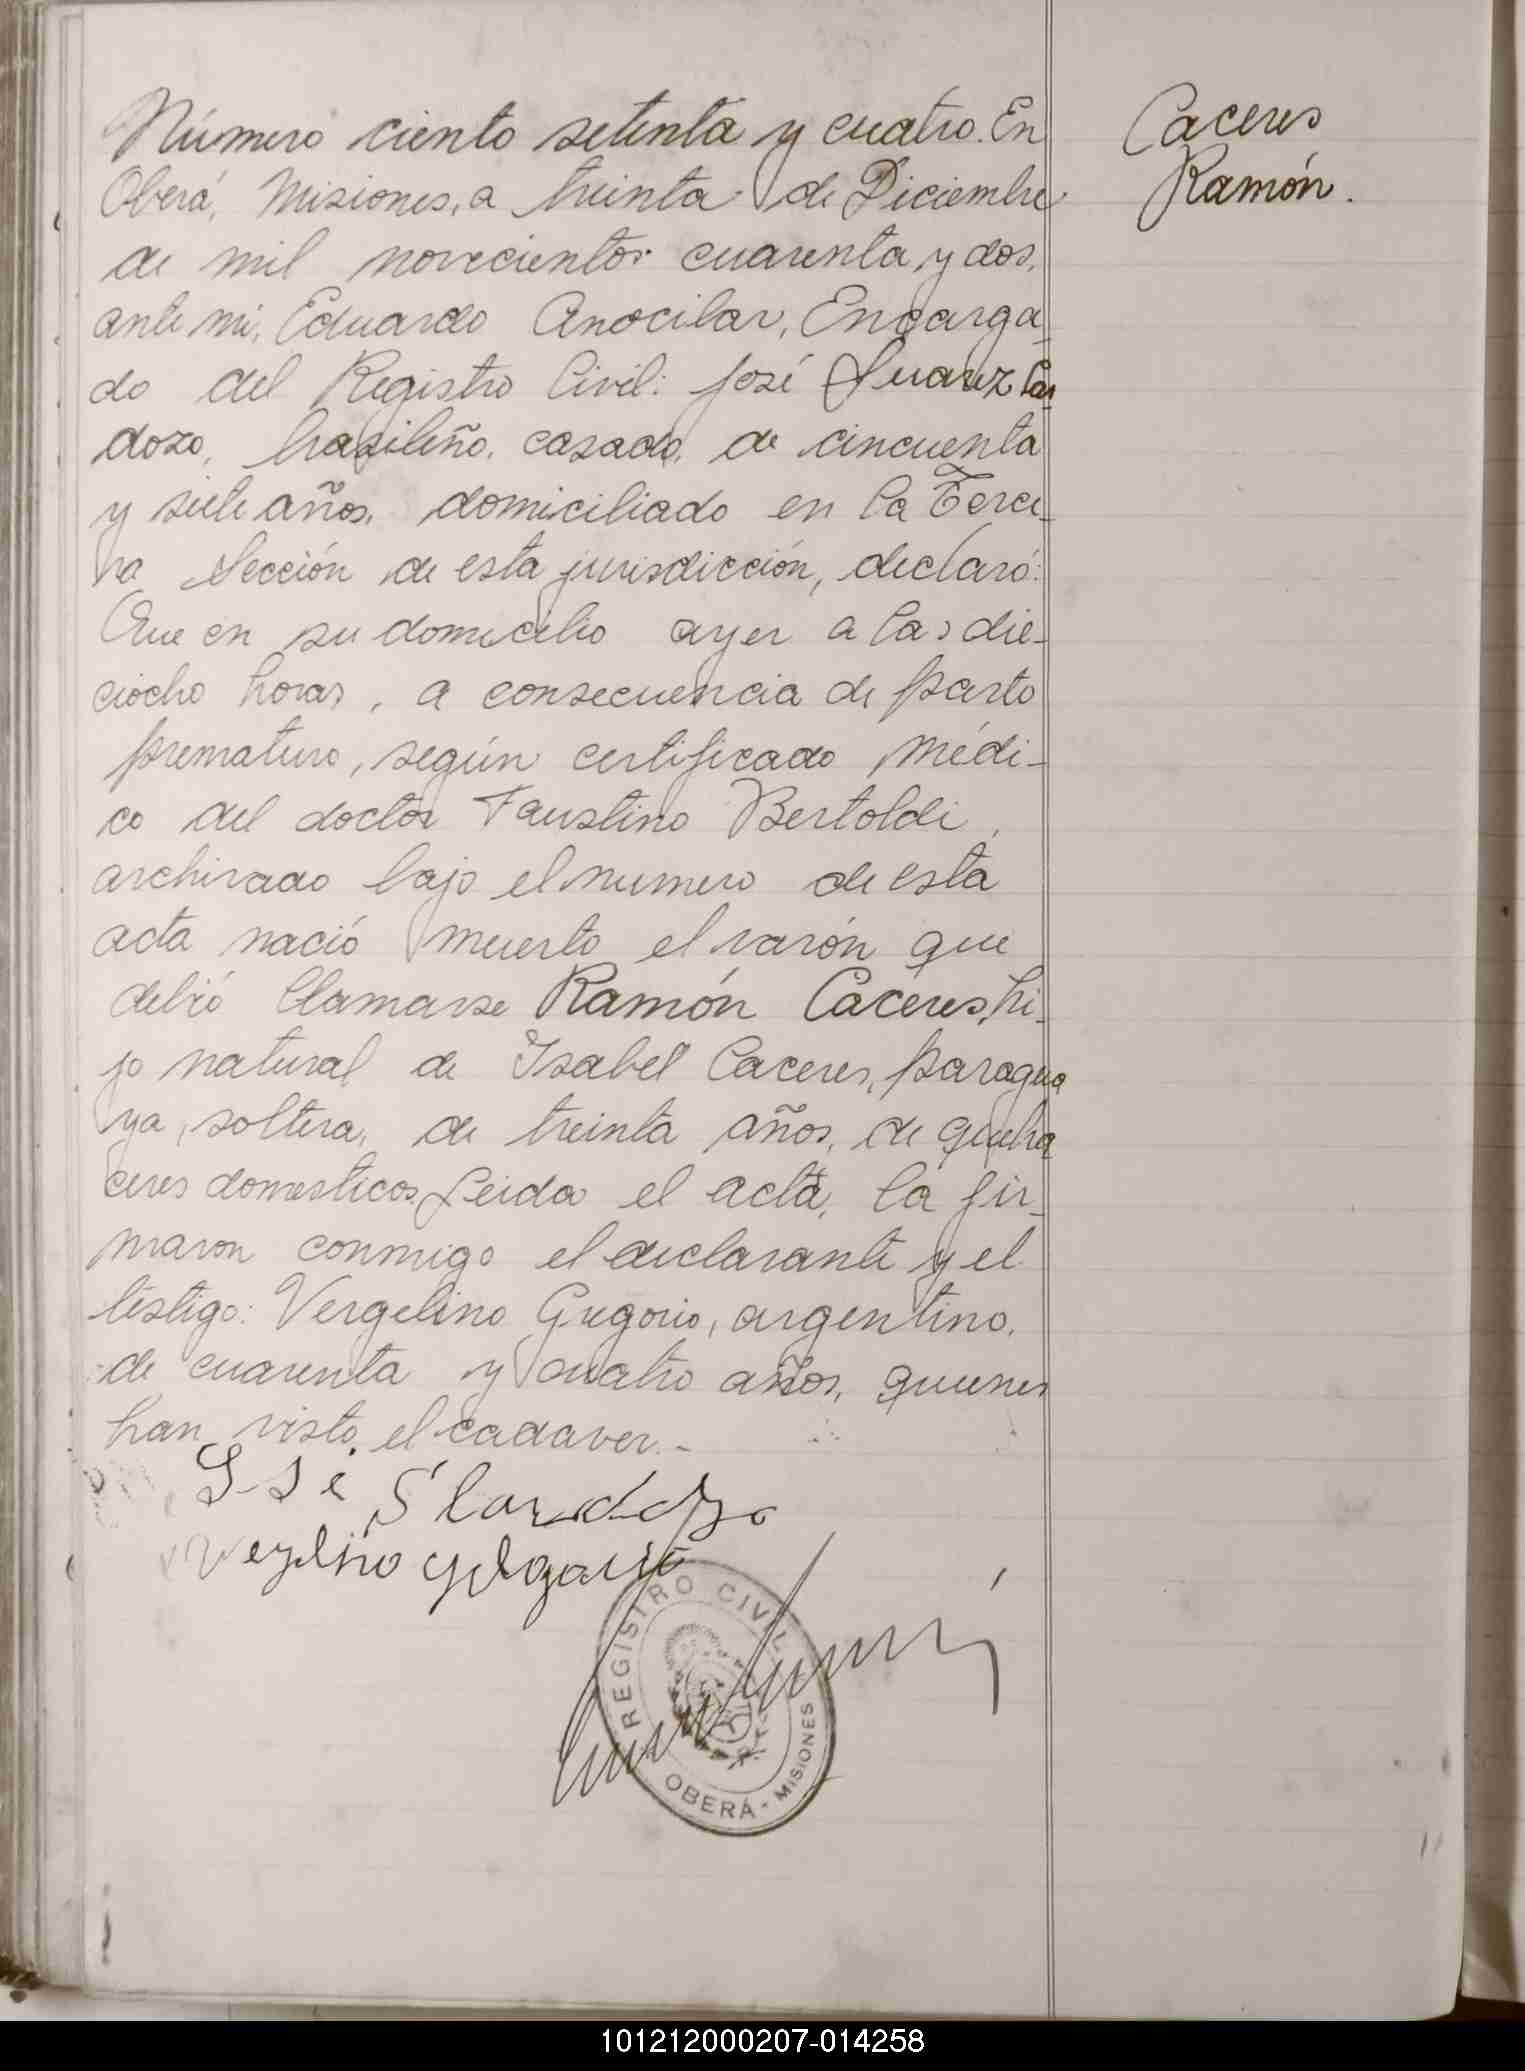 Número ciento setenta y cuatro. En
Oberá, Misiones, a treinta de Diciembre
de mil novecientos cuarenta y dos,
ante mi, Eduardo Anocilar, Encarga-
do del Registro Civil: José Suarez Car-
dozo, brasileño, casado, de cincuenta
y siete años, domiciliado en la Terce-
ra Sección de esta jurisdicción, declaró:
Que en su domicilio ayer a las die-
ciocho horas, a consecuencia de parto
prematuro, según certificado médi-
co del doctor Faustino Bertoldi,
archivado bajo el numero de esta
acta nació muerto el varón que
debió llamarse Ramón Caceres, hi-
jo natural de Isabel Caceres, paragua
ya, soltera, de treinta años, de queha
ceres domesticos. Leida el acta, la fir-
maron conmigo el declarante y el
testigo: Vergelino Gregorio, argentino,
de cuarenta y cuatro años, quienes
han visto el cadaver.-
Caceres
Ramón.
José S Cardozo
REGISTRO CIVIL
OBERÁ - MISIONES
101212000207-014258